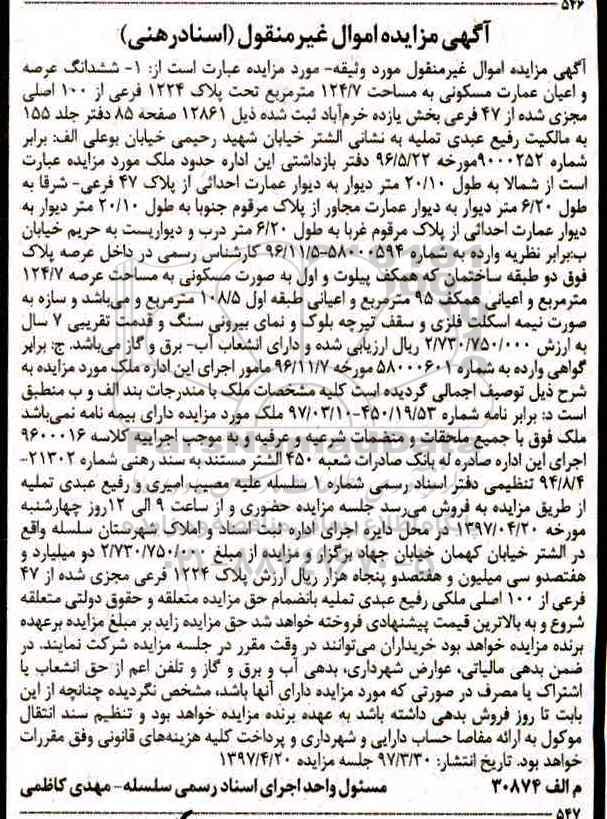 ۵۲۶
آگهی مزایده اموال غیرمنقول (اسنادرهنی)
آگهی مزایده اموال غیرمنقول مورد وثیقه- مورد مزایده عبارت است از: ۱- ششدانگ عرصه
و اعیان عمارت مسکونی به مساحت ۱۲۴/۷ مترمربع تحت پلاک ۱۲۲۴ فرعی از ۱۰۰ اصلی
مجزی شده از ۴۷ فرعی بخش یازده خرم‌آباد ثبت شده ذیل ۱۲۸۶۱ صفحه ۸۵ دفتر جلد ۱۵۵
به مالکیت رفیع عبدی تملیه به نشانی الشتر خیابان شهید رحیمی خیابان بوعلی الف: برابر
شماره ۹۰۰۰۲۵۲مورخه ۹۶/۵/۲۲ دفتر بازداشتی این اداره حدود ملک مورد مزایده عبارت
است از شمالا به طول ۲۰/۱۰ متر دیوار به دیوار عمارت احداثی از پلاک ۴۷ فرعی- شرقا به
طول ۶/۲۰ متر دیوار به دیوار عمارت مجاور از پلاک مرقوم جنوبا به طول ۲۰/۱۰ متر دیوار به
دیوار عمارت احداثی از پلاک مرقوم غربا به طول ۶/۲۰ متر درب و دیواریست به حریم خیابان
ب:برابر نظریه وارده به شماره ۵۸۰۰۰۵۹۴-۹۶/۱۱/۵ کارشناس رسمی در داخل عرصه پلاک
فوق دو طبقه ساختمان که همکف پیلوت و اول به صورت مسکونی به مساحت عرصه ۱۲۴/۷
مترمربع و اعیانی همکف ۹۵ مترمربع و اعیانی طبقه اول ۱۰۸/۵ مترمربع و می‌باشد و سازه به
صورت نیمه اسکلت فلزی و سقف تیرچه بلوک و نمای بیرونی سنگ و قدمت تقریبی ۷ سال
به ارزش ۲/۷۳۰/۷۵۰/۰۰۰ ریال ارزیابی شده و دارای انشعاب آب- برق و گاز می‌باشد. ج: برابر
گواهی وارده به شماره ۵۸۰۰۰۶۰۱ مورخه ۹۶/۱۱/۷ مامور اجرای این اداره ملک مورد مزایده به
شرح ذیل توصیف اجمالی گردیده است کلیه مشخصات ملک با مندرجات بند الف و ب منطبق
است د: برابر نامه شماره ۴۵۰/۱۹/۵۳-۹۷/۰۳/۱۰ ملک مورد مزایده دارای بیمه نامه نمی‌باشد
ملک فوق با جمیع ملحقات و منضمات شرعیه و عرفیه و به موجب اجراییه کلاسه ۹۶۰۰۰۱۶
اجرای این اداره صادره له بانک صادرات شعبه ۴۵۰ الشتر مستند به سند رهنی شماره ۲۱۳۰۲-
۹۴/۸/۴ تنظیمی دفتر اسناد رسمی شماره ۱ سلسله علیه مصیب امیری و رفیع عبدی تملیه
از طریق مزایده به فروش می‌رسد جلسه مزایده حضوری و از ساعت ۹ الی ۱۲ روز چهارشنبه
مورخه ۱۳۹۷/۰۴/۲۰ در محل دایره اجرای اداره ثبت اسناد و املاک شهرستان سلسله واقع
در الشتر خیابان کهمان خیابان جهاد برگزار و مزایده از مبلغ ۲/۷۳۰/۷۵۰/۰۰۰ دو میلیارد و
هفتصدو سی میلیون و هفتصدو پنجاه هزار ریال ارزش پلاک ۱۲۲۴ فرعی مجزی شده از ۴۷
فرعی از ۱۰۰ اصلی ملکی رفیع عبدی تملیه بانضمام حق مزایده متعلقه و حقوق دولتی متعلقه
شروع و به بالاترین قیمت پیشنهادی فروخته خواهد شد حق مزایده زاید بر مبلغ مزایده برعهده
برنده مزایده خواهد بود خریداران می‌توانند در وقت مقرر در جلسه مزایده شرکت نمایند. در
ضمن بدهی مالیاتی، عوارض شهرداری، بدهی آب و برق و گاز و تلفن اعم از حق انشعاب یا
اشتراک یا مصرف در صورتی که مورد مزایده دارای آنها باشد، مشخص نگردیده چنانچه از این
بابت تا روز فروش بدهی داشته باشد به عهده برنده مزایده خواهد بود و تنظیم سند انتقال
موکول به ارائه مفاصا حساب دارایی و شهرداری و پرداخت کلیه هزینه‌های قانونی وفق مقررات
خواهد بود. تاریخ انتشار: ۹۷/۳/۳۰ جلسه مزایده ۱۳۹۷/۴/۲۰
م الف ۳۰۸۷۴ مسئول واحد اجرای اسناد رسمی سلسله- مهدی کاظمی
۵۴۷